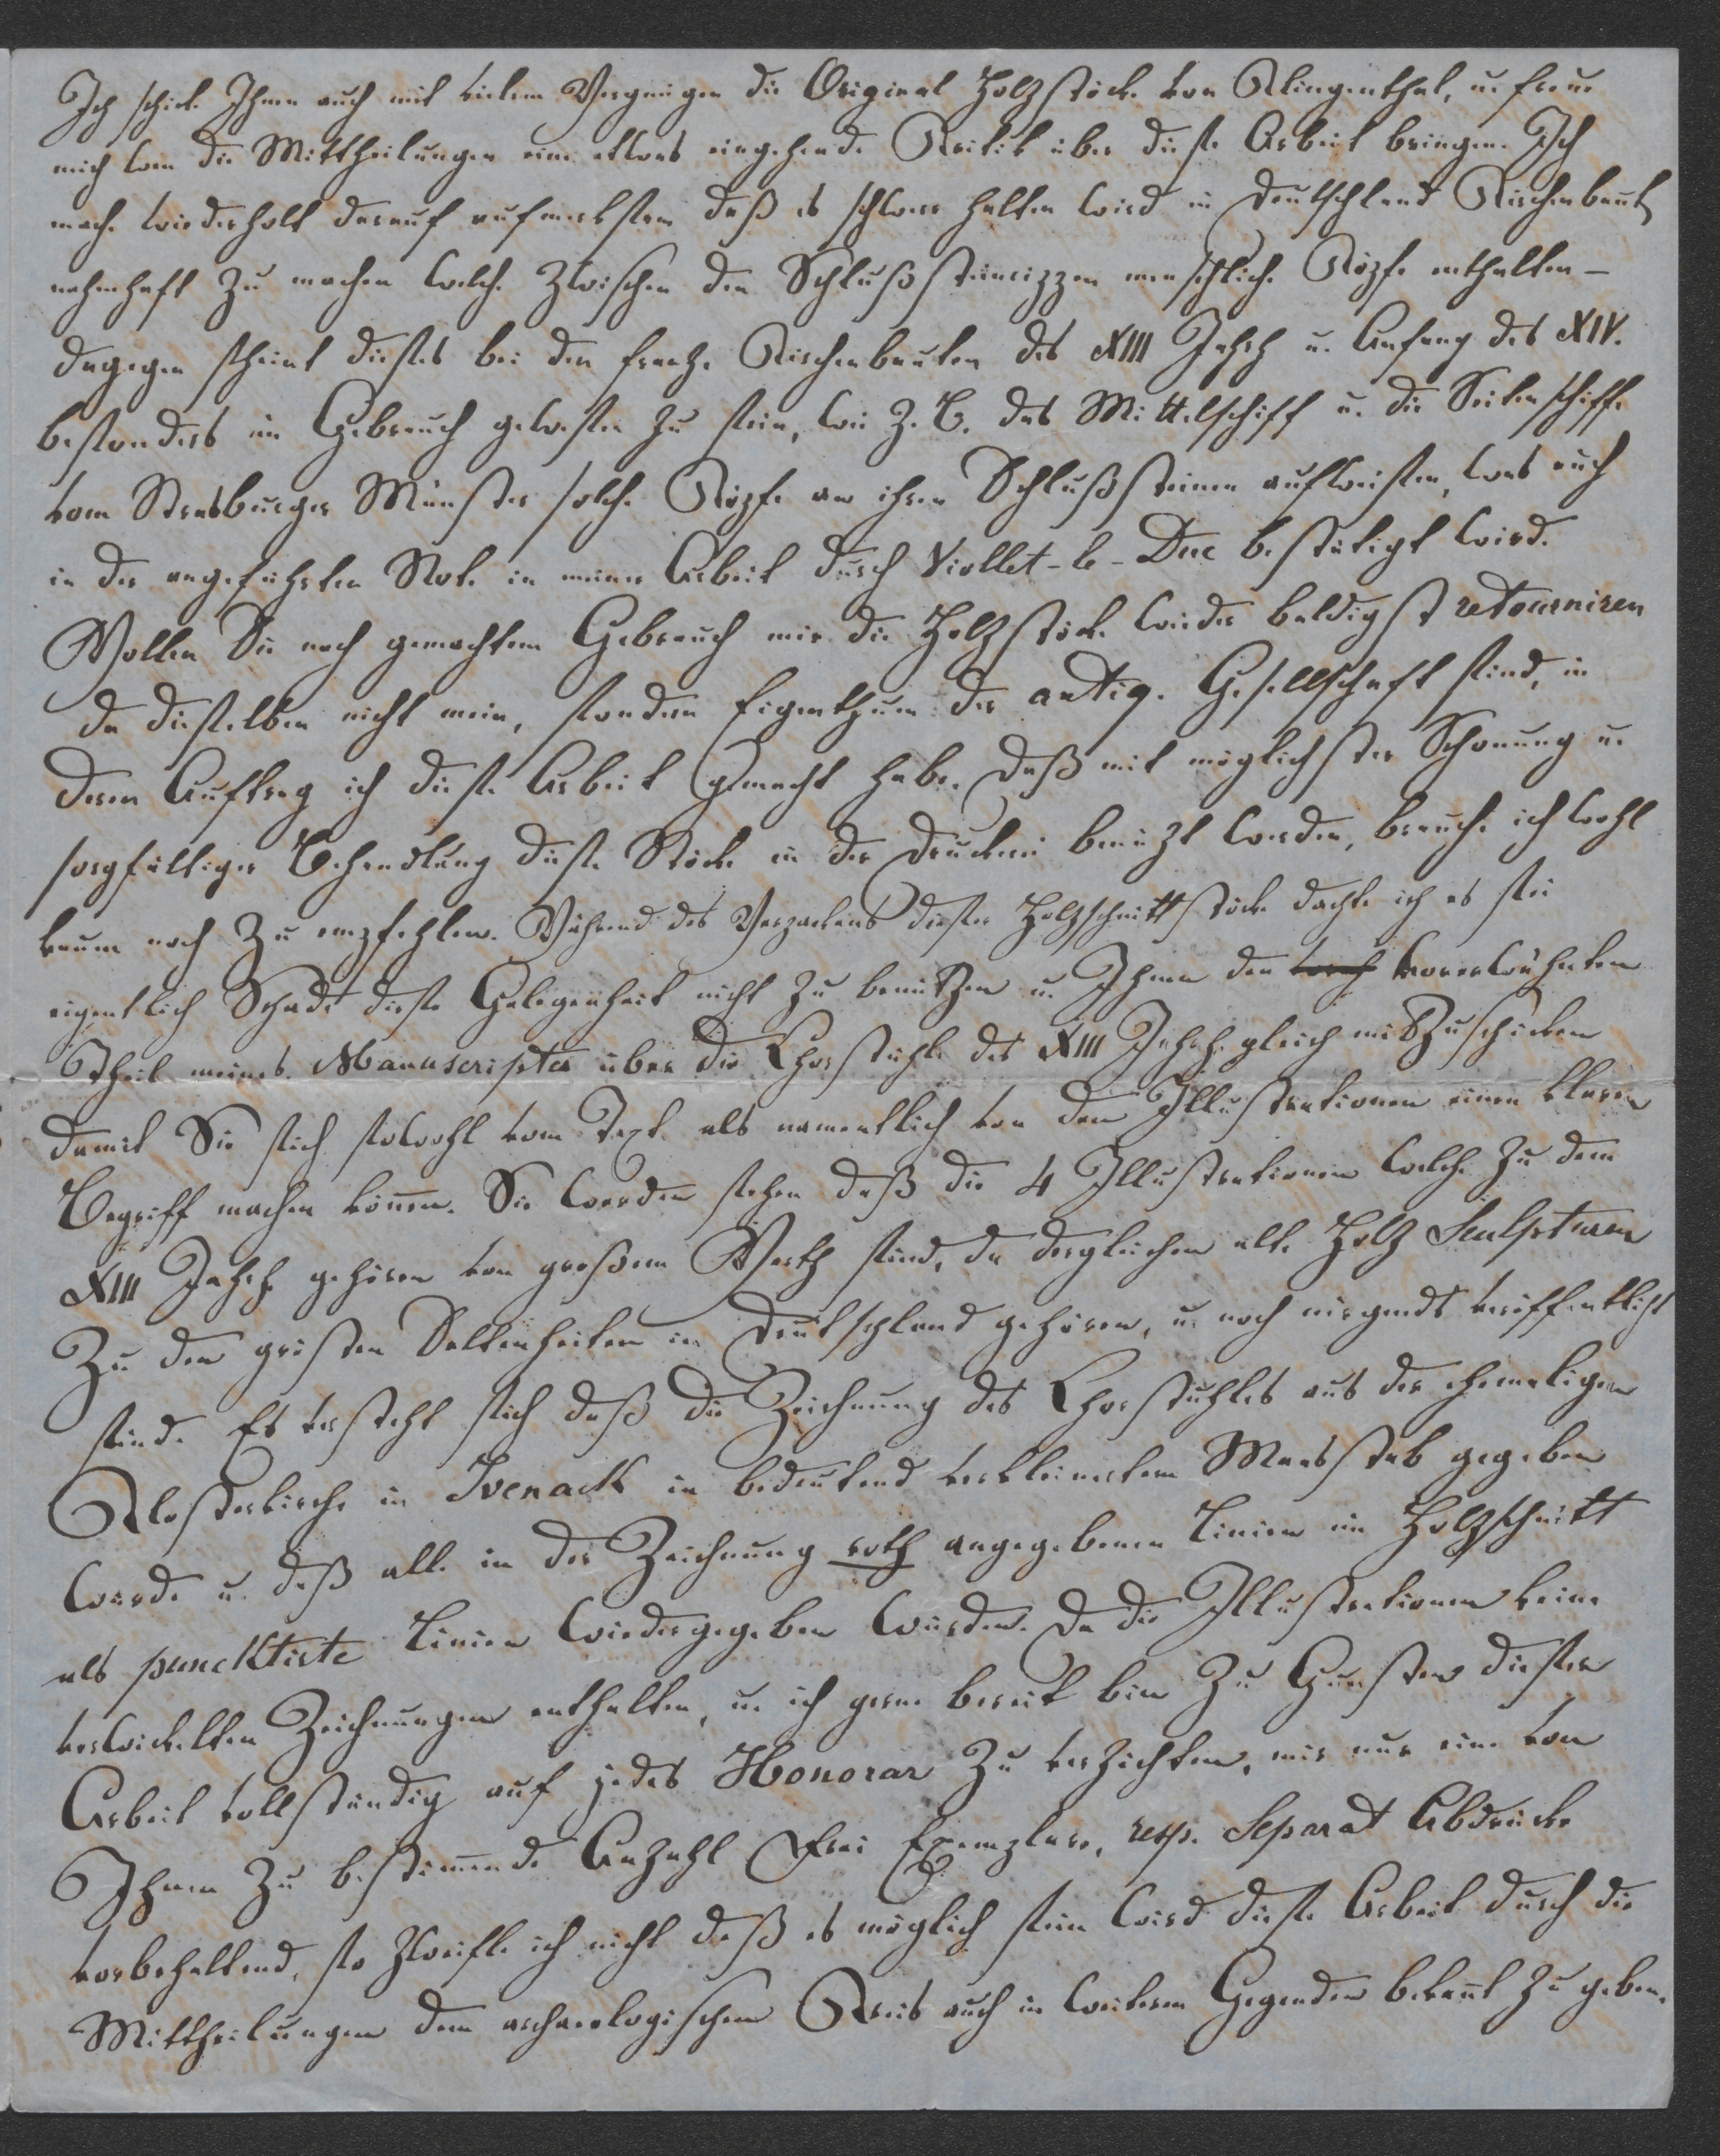 Ich schicke Ihnen auch mit vielem Vergnügen die Original Holzstöcke von Klingenthal, u. freue
mich wenn die Mittheilungen eine etwas eingehende Kritik über diese Arbeit bringen. Ich
mache wiederholt darauf aufmerksam daß es schwer halten wird in Deutschland Kirchenbaut.
nahmhaft zu machen welche zwischen den Schlußsteinrippen menschliche Köpfe enthalten –
dagegen scheint dieses bei den franz. Kirchenbauten des XIII Jahrh u. Anfang des XIV.
besonders im Gebrauch gewesen zu sein, wie z. B. das Mittelschiff u. die Seitenschiffe
vom Strasburger Münster solche Köpfe an ihren Schlußsteinen aufweisen, was auch
in der angeführten Note in meiner Arbeit durch Viollet-le-Duc bestätigt wird.
Wollen Sie nach gemachtem Gebrauch mir die Holzstöcke wieder baldigst retourniren
da dieselben nicht mein, sondern Eigenthum der antiq. Gesellschaft sind, in
deren Auftrag ich diese Arbeit gemacht habe. Daß mit möglichster Schonung u.
sorgfältiger Behandlung diese Stöcke in der Druckerei benüzt werden, brauche ich wohl
kaum noch zu empfehlen. Während des Verpackens dieser Holzschnittstöcke dachte ich es sei
eigentlich Schade diese Gelegenheit nicht zu benützen u. Ihnen den vorerwähnten
Theil meines Manuscriptes über die Chorstühle des XIII Jahrh. gleich mitzuschicken
damit Sie sich sowohl vom Text als namentlich von den Illustrationen einen klaren
Begriff machen können. Sie werden sehen daß die 4 Illustrationen welche zu dem
XIII Jahrh gehören von großem Werth sind, da dergleichen alte Holz Sculpturen
zu den grösten Seltenheiten in Deutschland gehören, u. noch nirgends veröffentlicht
sind. Es versteht sich daß die Zeichnung des Chorstuhles aus der ehemaligen
Klosterkirche in Ivenack in bedeutend verkleinertem Maasstab gegeben
würde u. daß alle in der Zeichnung roth angegebenen Linien im Holzschnitt
als puncktirte Linien wiedergegeben würden. Da die Illustrationen keine
verwickelten Zeichnungen enthalten, u. ich gerne bereit bin zu Gunsten dieser
Arbeit vollständig auf jedes Honorar zu verzichten, mir nur eine von
Ihnen zu bestimmende Anzahl Frei Exemplare, resp. Separat Abdrücke
vorbehaltend, so zweifle ich nicht daß es möglich sein wird diese Arbeit durch die
Mittheilungen dem archaeologischen Kreis auch in weiteren Gegenden bekannt zu geben.